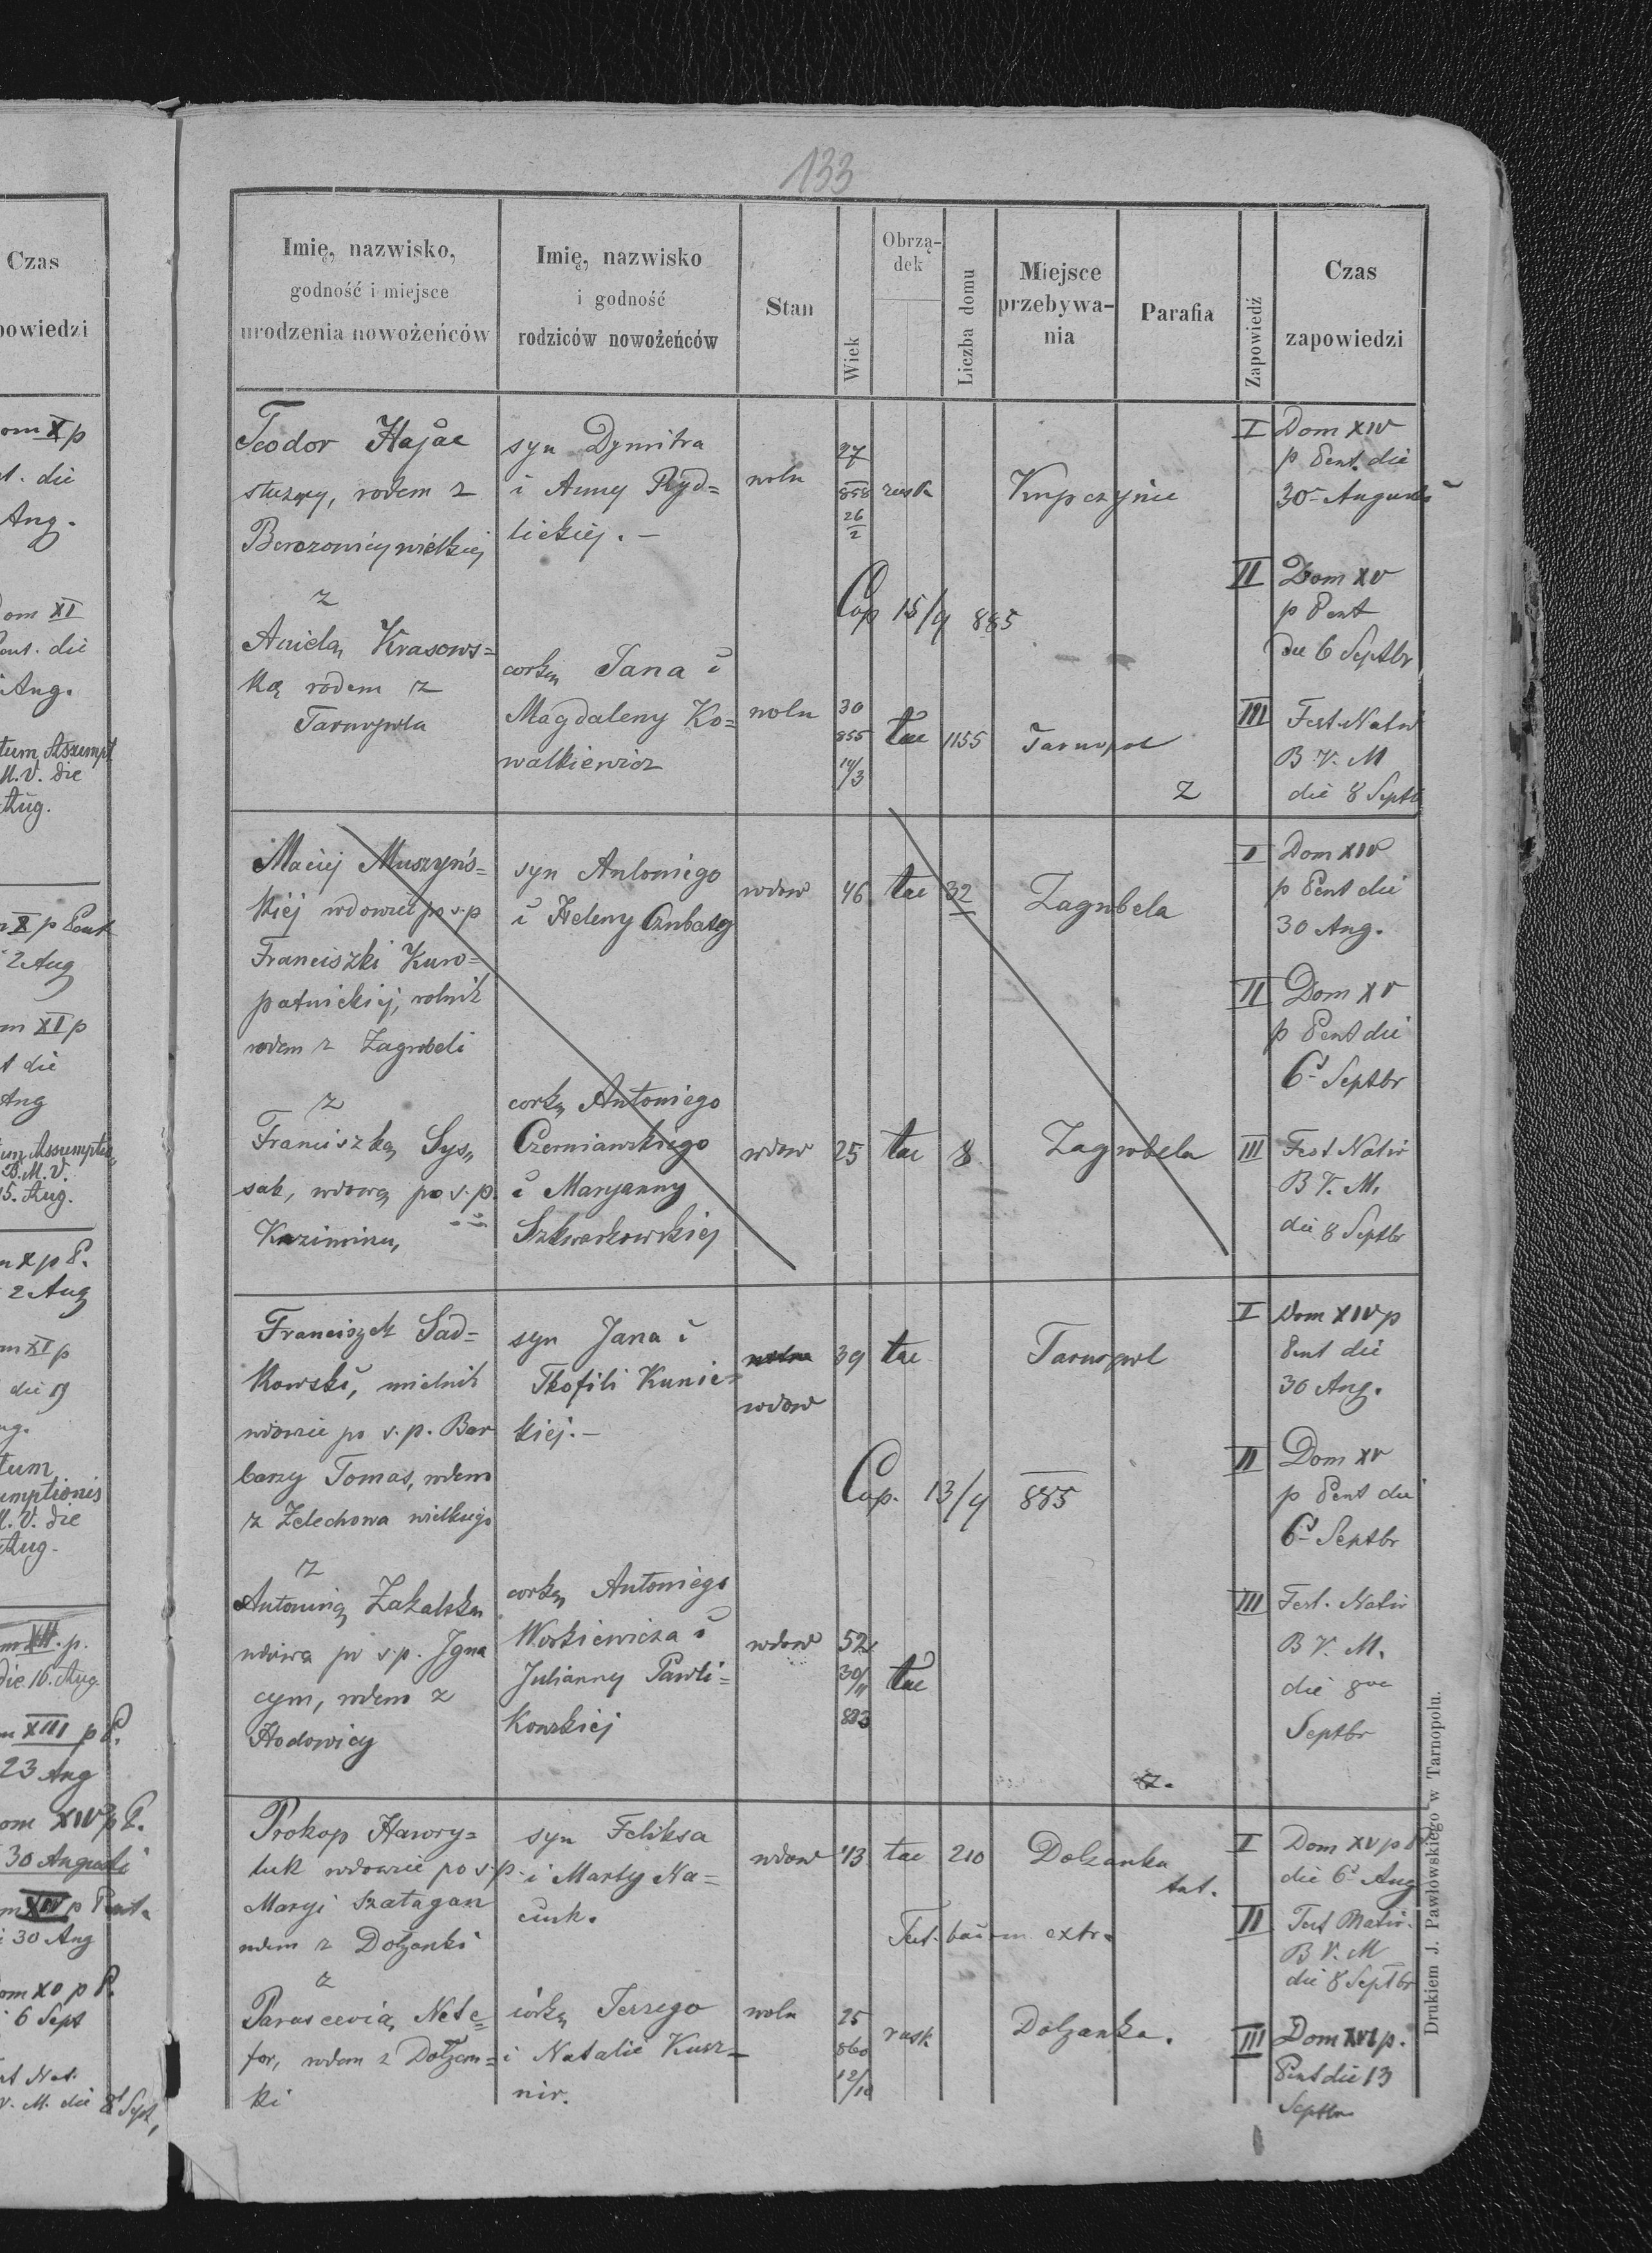 133
Imię, nazwisko,
godność i miejsce
urodzenia nowożeńców
Imię, nazwisko
i godność
rodziców nowożeńców
Stan
Wiek
Obrzą-
dek
Liczba domu
Miejsce
przebywa-
nia
Parafia
Zapowiedź
Czas
zapowiedzi
Teodor Hajac
służący, rodem z
Berezowicy wielkiej
z
Anielą Krasows=
ką rodem z
Tarnopola
syn Dymitra
i Anny Ryd=
lickiej. —
corką Jana i
Magdaleny Ko=
walkiewicz
woln
27
858
26
2
rusk
Kupczyńce
Cop 15/9 885
woln
30
855
14/3
łac
1155
Tarnopol
z
I Dom XIV
p Pent. die
30 Augusti
II Dom XV
p Pent
die 6 Septbr
III Fest Nativ
B V. M
die 8 Septb
Maciej Muszyńs=
kiej wdowiec po s. p
Franciszki Kuro=
patnickiej, rolnik
rodem z Zagrobeli
z
Franciszką Sys„
sak, wdową po s. p.
Kazimirzu,
syn Antoniego
i Heleny
corką Antoniego
Czerniawskiego
i Maryanny
wdow 46 łac 32 Zagrobela
wdow 25 łac 8 Zagrobela
I Dom XIV
p Pent die
30 Aug.
II Dom XV
p Pent die
6 Septbr
III Fest Nativ
B V. M.
die 8 Septbr
Franciszek Sad=
kowski, mielnik
wdowiec po s. p. Bar
bary Tomas, rodem
z Zelechowa wielkiego
z
Antoniną Zakalską
wdowa po s. p. Igna
cym, rodem z
Hodowicy
syn Jana i
Teofili Kunic=
kiej. —
corką Antoniego
Workiewicza i
Julianny Pawli=
kowskiej
woln
wdow
39 łac Tarnopol
Cop. 13/9 885
wdow
52
30/11
833
łac
z.
I Dom XIV p
Pent die
30 Aug.
II Dom XV
p Pent die
6 Septbr
III Fest. Nativ
B V. M.
die 8va
Septbr
Prokop Hawry=
luk wdowiec po s. p.
Maryi Szatagan
rodem z Dołżanki
z
Parascevią Nete=
for, rodem z Dołżan=
ki
syn Feliksa
i Marty Na=
ciuk.
córką Jerzego
i Natalie Kusz=
nir.
wdow 43 łac 210 Dolzanka
tut.
extr.
woln
25
860
12/10
rusk
Dolzanka.
I Dom XV p P
die 6 Aug
II Fest Nativ.
B V. M
die 8 Septbr
III Dom XVI p.
Pent die 13
Septbr
Drukiem J. Pawłowskiego w Tarnopolu.
Czas
powiedzi
om X p
t. die
Aug.
om XI
ent. die
Aug.
tum Assumpt
M. V. die
Aug.
X p Pent
2 Aug
m XI p
t die
Aug
B. M. V.
15. Aug.
m X p P.
2 Aug
m XI p
die 9
ug.
tum
umptionis
M. V. die
Aug.
m XII. p.
die 16. Aug.
m XIII p P.
23 Aug
om XIV p P.
30 Augusti
m XIV p Pent.
30 Aug
om XV p P.
6 Sept
st Nat.
V. M. die 8 Sept,